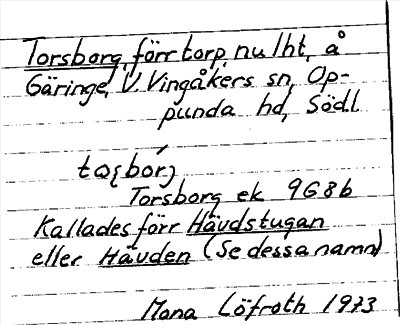 Torsborg, förr torp, nu lht, å
Gäringe, V. Vingåkers sn, Op-
punda hd, Södl
Torsborg ek 9G8b
Kallades förr Hävdstugan
eller Hävden (Se dessa namn)
Mona Löfroth 1973